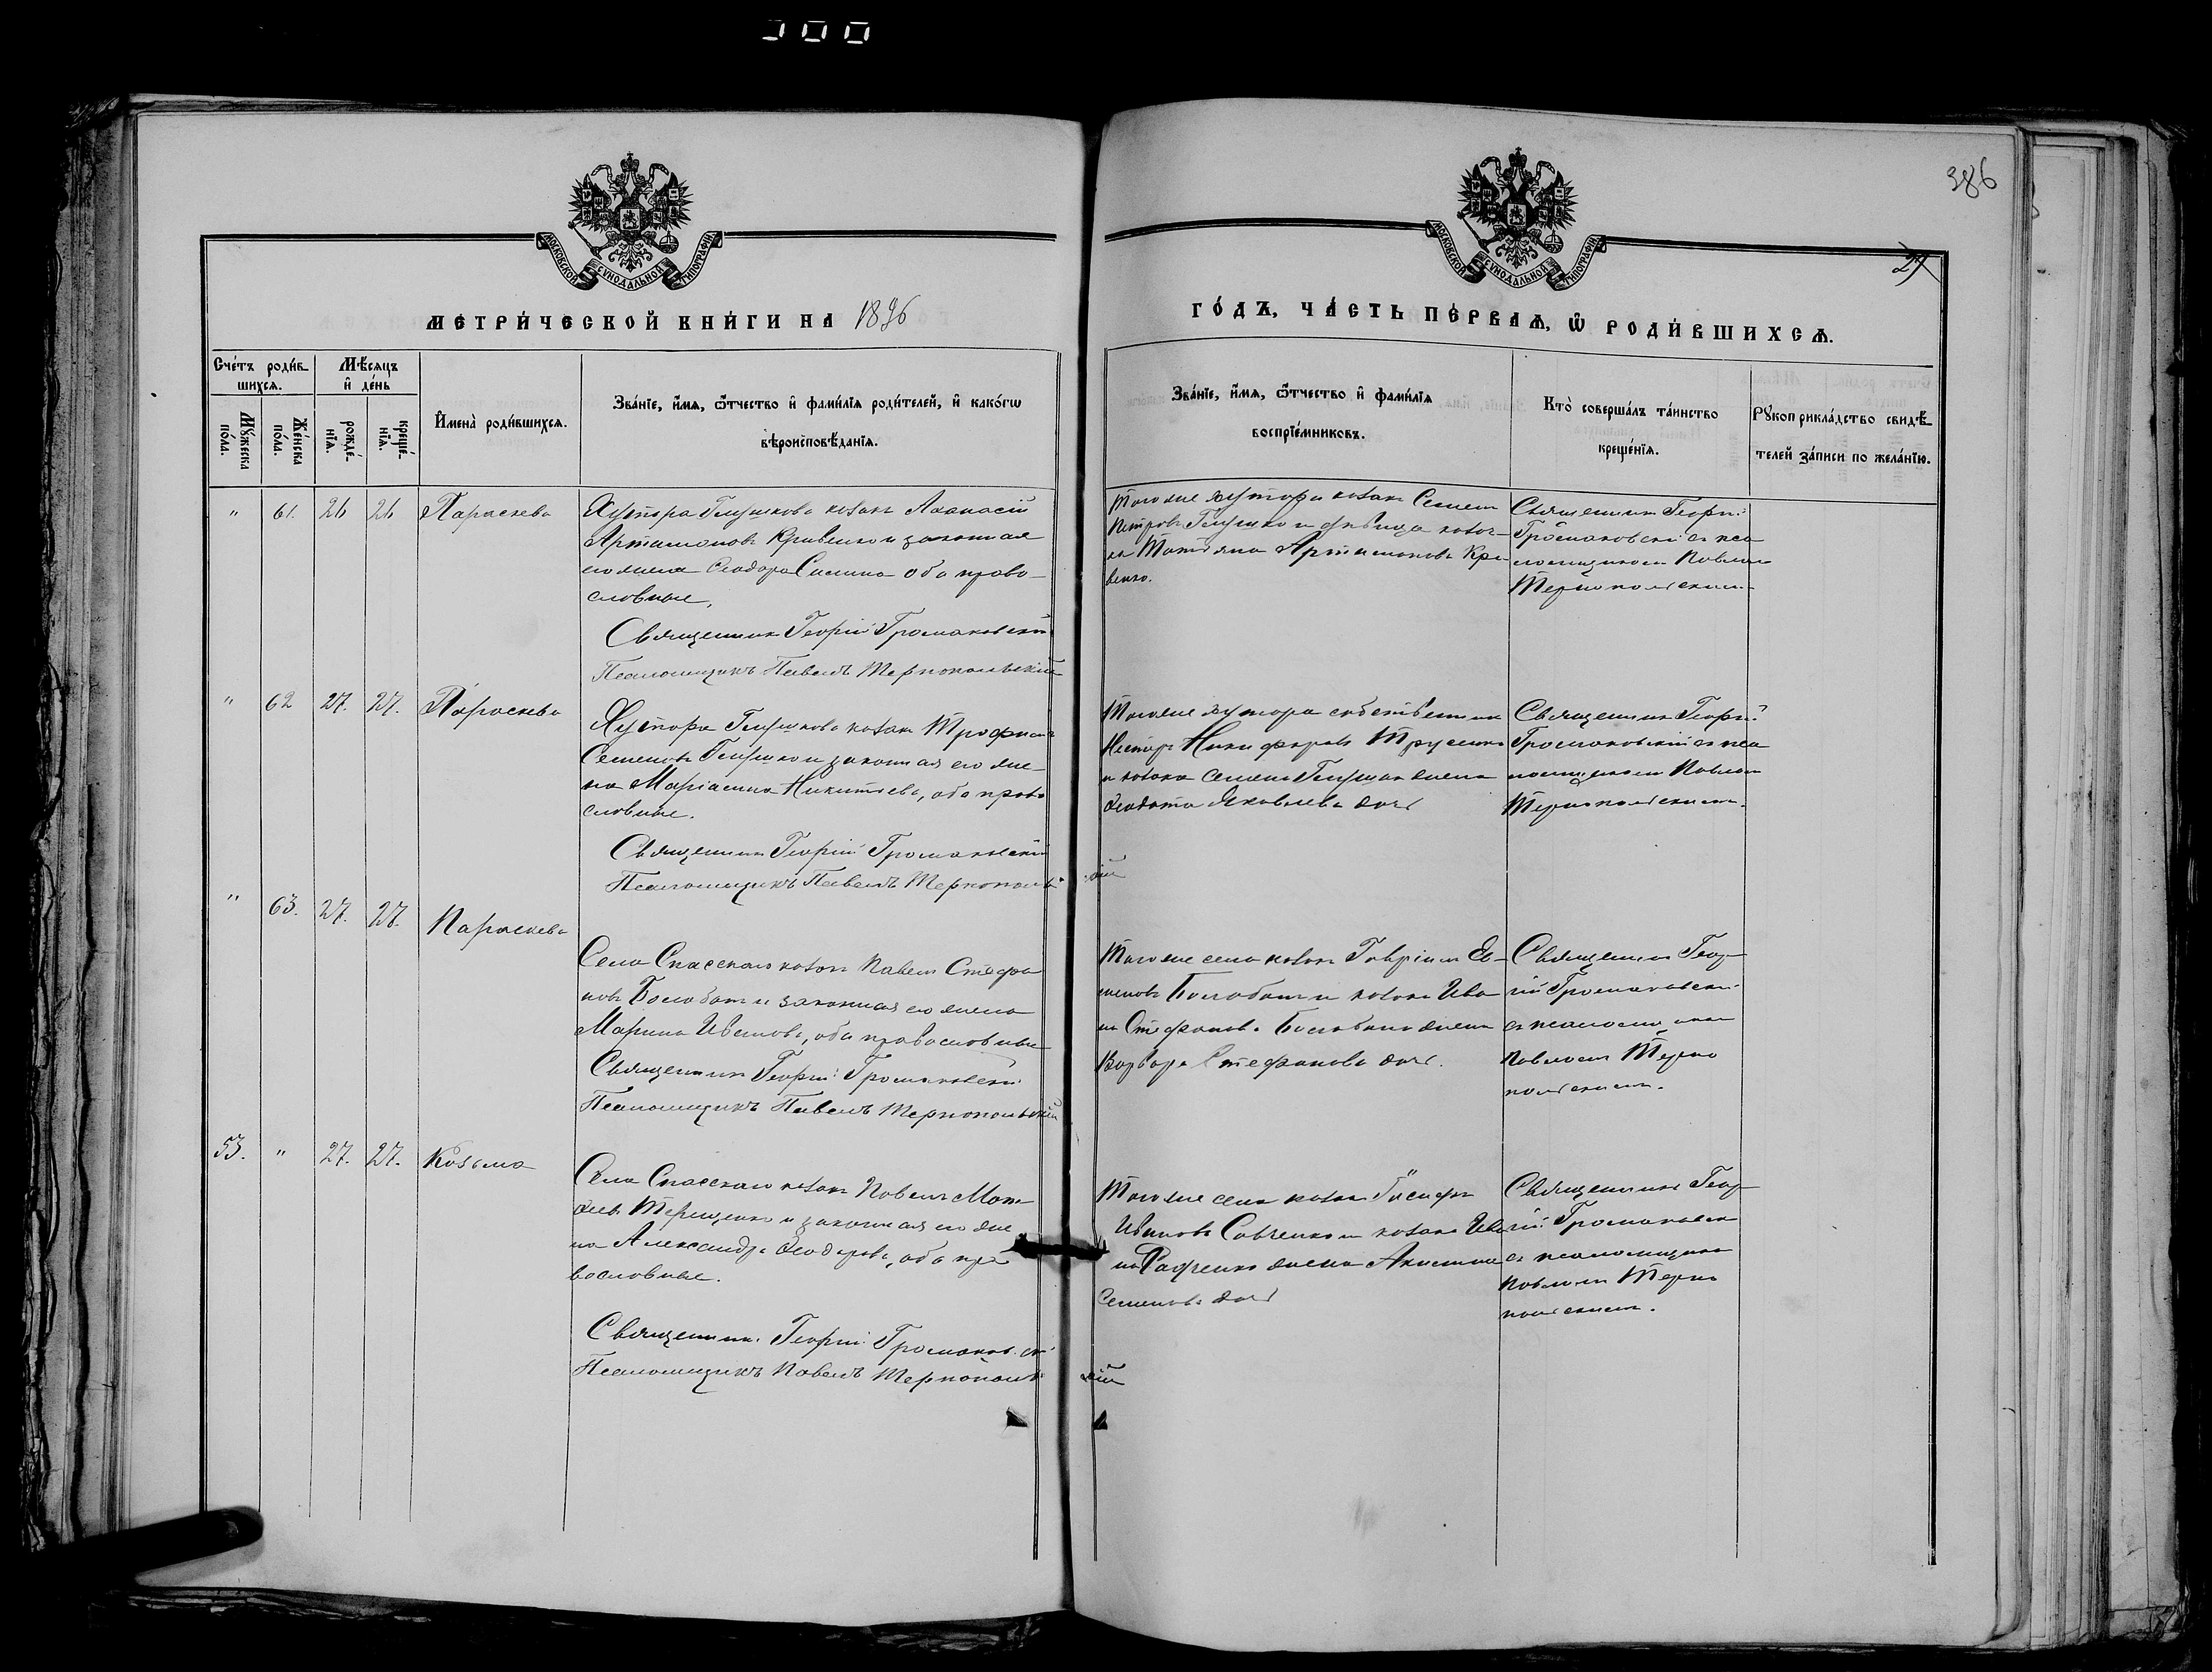 386
27
МОСКОВСКОЙ СѴНОДАЛЬНОЙ ТИПОГРАФІИ
МОСКОВСКОЙ СѴНОДАЛЬНОЙ ТИПОГРАФІИ
МЕТРИ́ЧЕСКОЙ КНИ́ГИ НА 1896
ГО́ДЪ, ЧА́СТЬ ПЕ́РВАѦ, Ѡ҆ РОДИ́ВШИХСѦ.
Сче́тъ роди́в-
шихсѧ.
Мꙋ́жеска по́ла.
Же́нска по́ла.
Мѣ́сяцъ
и҆ де́нь
рожде́-нїѧ.
креще́-нїѧ.
И҆мена̀ роди́вшихсѧ.
Зва́нїе, и҆́мѧ, ѻ҆́тчество и҆ фами́лїѧ роди́телей, и҆ како́гѡ
вѣроисповѣ́данїѧ.
Зва́нїе, и҆́мѧ, ѻ҆́тчество и҆ фами́лїѧ
воспрїе́мниковъ.
Кто̀ соверша́лъ та́инство
креще́нїѧ.
Рꙋкоприкла́дство свидѣ́-
телей за́писи по жела́нїю.
" 61. 26 26 Параскева
Хутора Глушкова козакъ Аѳанасій
Артамоновъ Кривенко и законная
его жена Ѳеодора Савина оба право-
славные.
Священникъ Георгій Громаковскій
Псаломщикъ Павелъ Тернопольскій
Того же хутора козакъ Семенъ
Петровъ Глушко и дѣвица козач-
ка Татіяна Артамонова Кри-
венко.
Священникъ Георгій
Громаковскій съ пса
ломщикомъ Павломъ
Тернопольскимъ.
" 62 27. 27. Параскева
Хутора Глушкова козакъ Трофимъ
Семеновъ Глушко и законная его же-
на Маріамна Никитиева, оба право
славные.
Священникъ Георгій Громаковскій
Псаломщикъ Павелъ Тернопольскій
Того же хутора собственникъ
Несторъ Никифоровъ
и козака Семена Глушка жена
Яковлева дочь
Священникъ Георгій
Громаковскій съ пса
ломщикомъ Павломъ
Тернопольскимъ.
" 63. 27. 27. Параскева
Села Спасскаго козакъ Павелъ Стефа
новъ Балабанъ и законная его жена
Марина Иванова, оба православные
Священникъ Георгій Громаковскій
Псаломщикъ Павелъ Тернопольскій
Того же села козакъ Гавріилъ
Балабанъ и козака Ива
на Стефанова Балабана жена
Варвара Стефанова дочь.
Священникъ Геор
гій Громаковскій
съ псаломщикомъ
Павломъ Терно
польскимъ.
53. " 27. 27. Козьма
Села Спасскаго козакъ Павелъ Мат
ѳіевъ Терещенко и законная его же
на Александра Ѳеодорова, оба пра
вославные.
Священникъ Георгій Громаковскій
Псаломщикъ Павелъ Тернопольскій
Того же села козакъ Іосифъ
Ивановъ Савченко и козака Ива
на жена Акилина
Семенова дочь
Священникъ Геор
гій Громаковскій
съ псаломщикомъ
Павломъ Терно
польскимъ.